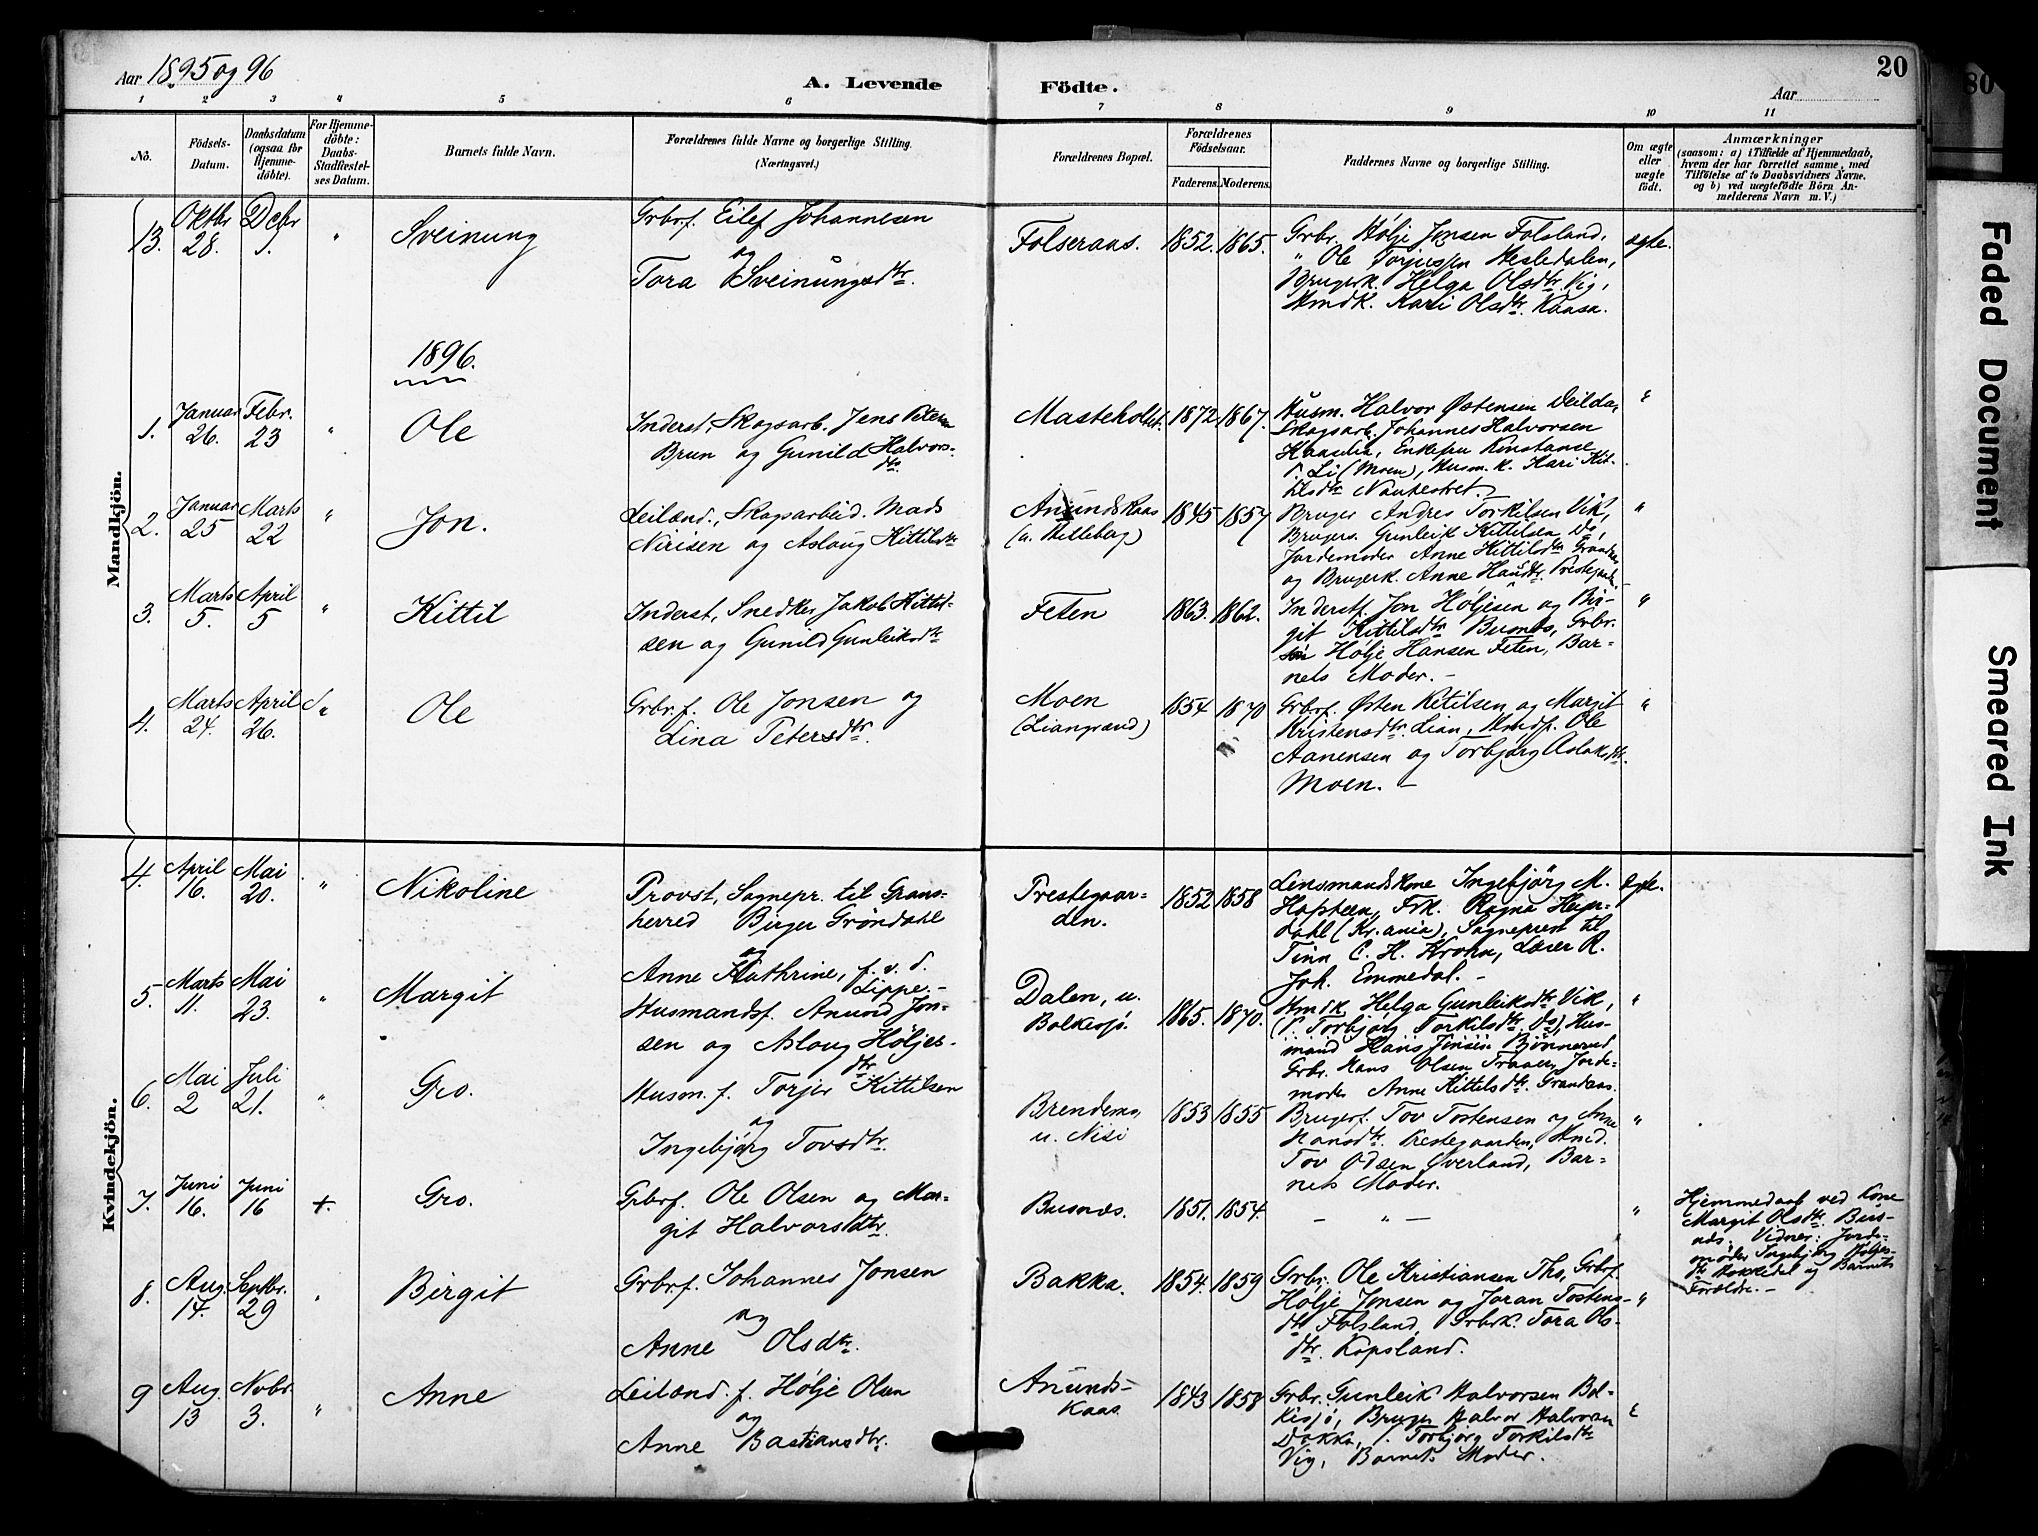 Aar 1895 og 96
A. Levende
Födte.
Aar
20
80
1 2 3 4 5 6 7 8 9 10 11
No.
Födsels-Datum.
Daabsdatum (ogsaa for Hjemmedöbte).
For Hjemmedöbte: Daabs-Stadfæstelses Datum.
Barnets fulde Navn.
Forældrenes fulde Navne og borgerlige Stilling.
(Næringsvei.)
Forældrenes Bopæl.
Forældrenes Födselsaar.
Faderens. Moderens.
Faddernes Navne og borgerlige Stilling.
Om ægte eller uægte födt.
Anmærkninger
(saasom: a) i Tilfælde af Hjemmedaab,
hvem der har forrettet samme, med
Tilföielse af to Daabsvidners Navne.
og b) ved uægtefödte Börn Anmelderens Navn m. V.)
Mandkjön.
13. Oktbr 28. Decbr 1. " Sveinung
Grbrf. Eilef Johannesen
og
Tora Sveinungsdtr.
Folseraas. 1852. 1865.
Grbr. Høljе Jonsen Folsland,
" Ole
Brugerk. Helga Olsdtr. Vig,
Hmdk. Kari Olsdtr. Kaasa.
ægte.
1896.
1. Januar 26. Febr. 23 " Ole
Inderst, Skogsarb. Jens Petersen
Brun og Gunild Halvors-
dtr
Masteholtet. 1872 1867.
Husm. Halvor Østensen Deilda,
Skogsarb. Johannes Halvorsen
Haaslia, Enkefru Konstanse
P. Li (Moen), Husm. k. Kari Kit-
tilsdtr
"
2. Januar 25 Marts 22 " Jon.
Leilænd., Skogsarbeid. Mads
Nirisen og Aslaug Kittilsdtr
Anundskaas
(u. Hilleberg)
1845 1857
Bruger Andres Torkilsen Vik,
Brugers. Gunleik Kittilsen Do,
Jordemoder Anne Kittilsdtr Grandaas
og Brugerk. Anne Hansdtr. Prestegaarden
"
3. Marts 5. April 5 " Kittil
Inderst, Snedker Jakob Kittil-
sen og Gunild Gunleiksdtr
Feten 1863. 1862.
Inderstf. Jon Høljesen og Bir-
git Kittilsdtr Busnes, Grbr.
Hølje Hansen Feten, Bar-
nets Moder. -
"
4. Marts 24. April 26. " Ole
Grbr. f. Ole Jonsen og
Lina Petersdtr.
Moen
(Liangrand)
1854 1870
Grbrf. Østen Ketilsen og Margit
Kristensdtr. Lian, Hmdf. Ole
Aanensen og Torbjørg Aslaksdtr.
Moen. -
"
Kvindekjön.
4. April 16. Mai 20. " Nikoline
Provst, Sognepr. til Grans-
herred Birger Grøndahl
og
Anne Kathrine, f. v. d.
Lippe. -
Prestegaar-
den.
1852 1858
Lensmandskone Ingebjørg M.
Hopsteen, Frk. Ragna Heyer-
dahl (Kr.ania), Sogneprest til
Tinn C. H. Krohn, Lærer R.
Joh. Emmedal. -
Ægte.
5. Marts 11. Mai 23. " Margit
Husmandsf. Anund Jon-
sen og Aslaug Høljes-
dtr
Dalen, u.
Bolkesjø.
1865. 1870.
Hmdk. Helga Gunleiksdtr Vik,
P. Torbjørg Torkilsdtr. Do, Hus-
mand Hans Jonsen Bjønnerud
Grbr. Hans Olsen Traaen, Jorde-
moder Anne Kittilsdtr. Grandaas.
"
6. Mai 2 Juli 21. " Gro.
Husm. f. Torjer Kittilsen
og
Ingebjørg Tovsdtr.
Brendemo,
u. Nisi
1853 1855
Brugerf. Tov Tostensen og Anne
Hansdtr. Prestegaarden, Hmd.
Tov Odsen Øverland, Bar-
nets Moder.
"
7. Juni 16. Juni 16 +. Gro.
Grbrf. Ole Olsen og Mar-
git Halvorsdtr.
Busnes. 1851. 1854.
- " -
"
Hjemmedaab ved Kone
Margit Olsdtr. Bus-
nes. Vidner: Jorde-
moder Ingebjørg Høljes-
dtr Bakkedal og Barnets
Forældre. -
8. Aug. 14. Septbr. 29 " Birgit
Grbr. f. Johannes Jonsen
og
Anne Olsdtr.
Bakka. 1854. 1859
Grbr. Ole Kristiansen Tho, Grbrf.
Hølje Jonsen og Joran Tostens-
dtr Folsland, Grbrk. Tora Ols-
dtr. Kopsland.
"
9 Aug. 13 Novbr 3. " Anne
Leilænd. f. Hølje Olsen
og
Anne Bastiansdtr.
Anunds-
kaas
1843 1858
Grbr. Gunleik Halvorsen Bol-
kesjø, Bruger Halvor Halvorsen
Dokka, P. Torbjørg Torkilsdtr
Vig, Barnets Moder.
"
Faded Document
Smeared Ink